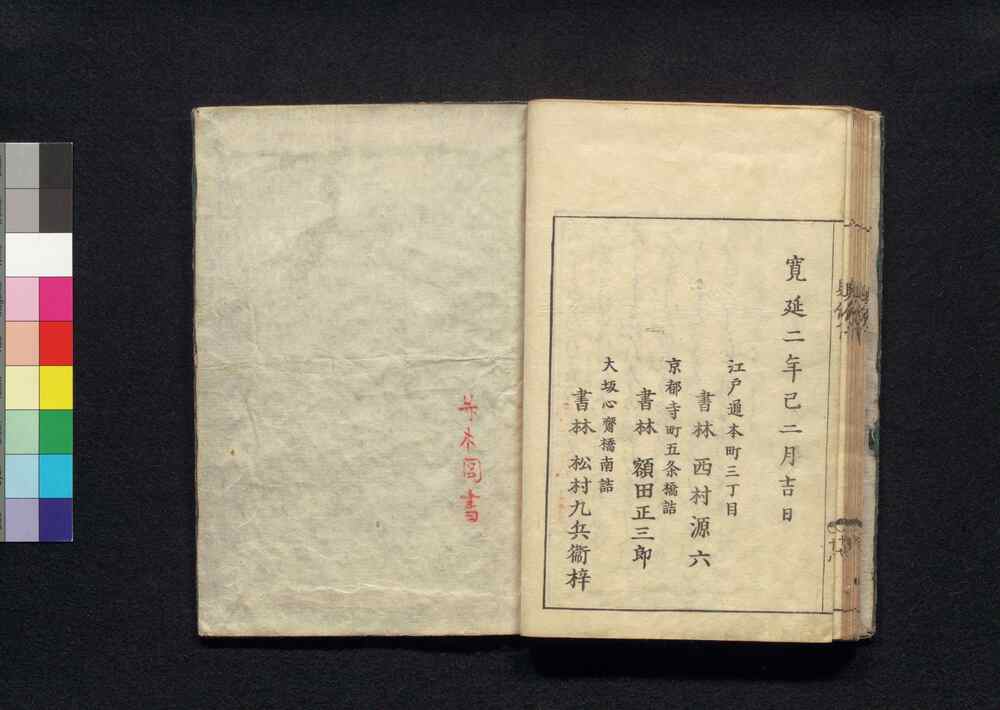 寛延二年己二月吉日
江戸通本町三丁目
書林 西村源六
京都寺町五条橋詰
書林 額田正三郎
大坂心齋橋南詰
書林 松村九兵衞梓
本圖書